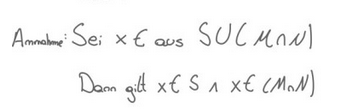 Annahme: Sei x € aus S∪(M∩N)
Dann gilt x€ S ∧ x€ (M∩N)